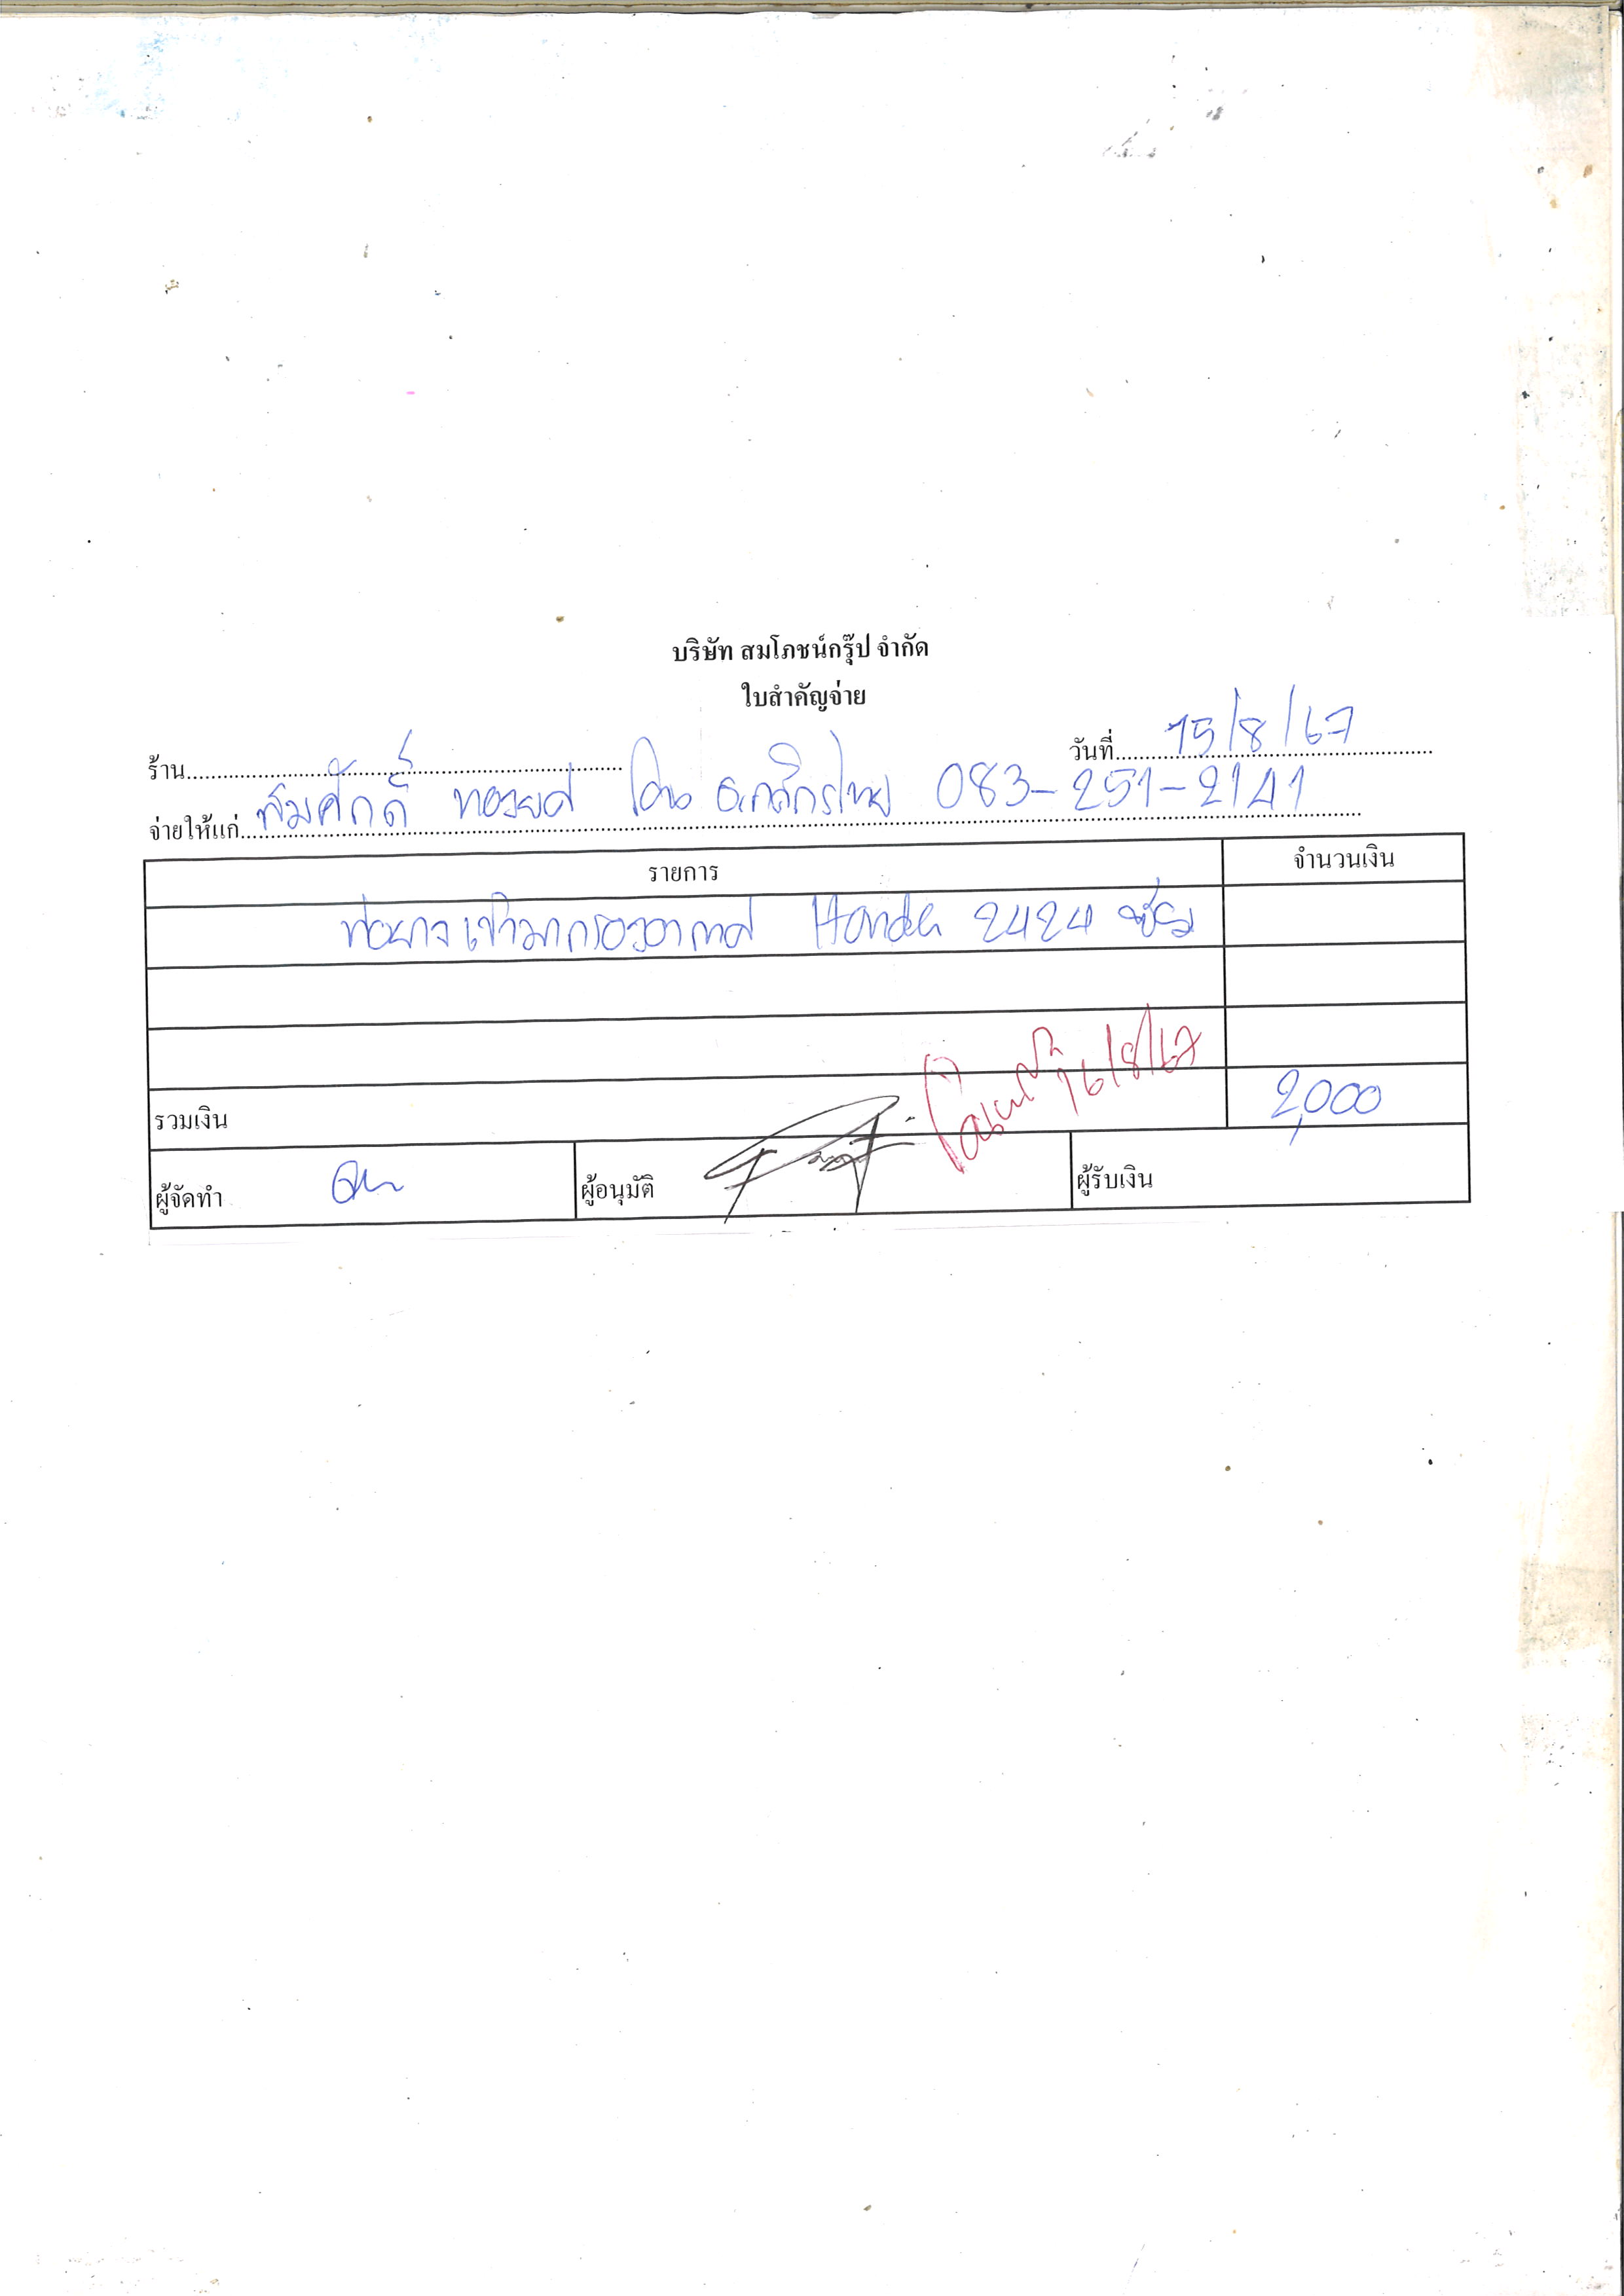 บริษัท สมโภชน์กรุ๊ป จำกัด
ใบสำคัญจ่าย
ร้าน วันที่ 15/8/67
จ่ายให้แก่ สมศักดิ์ ทองยศ โอน ธ.กสิกรไทย 083-251-2141
รายการ จำนวนเงิน
ท่อยางเข้ามากรองอากาศ Honda 2424
รวมเงิน 2,000
โอนแล้ว 16/8/67
ผู้จัดทำ ผู้อนุมัติ ผู้รับเงิน